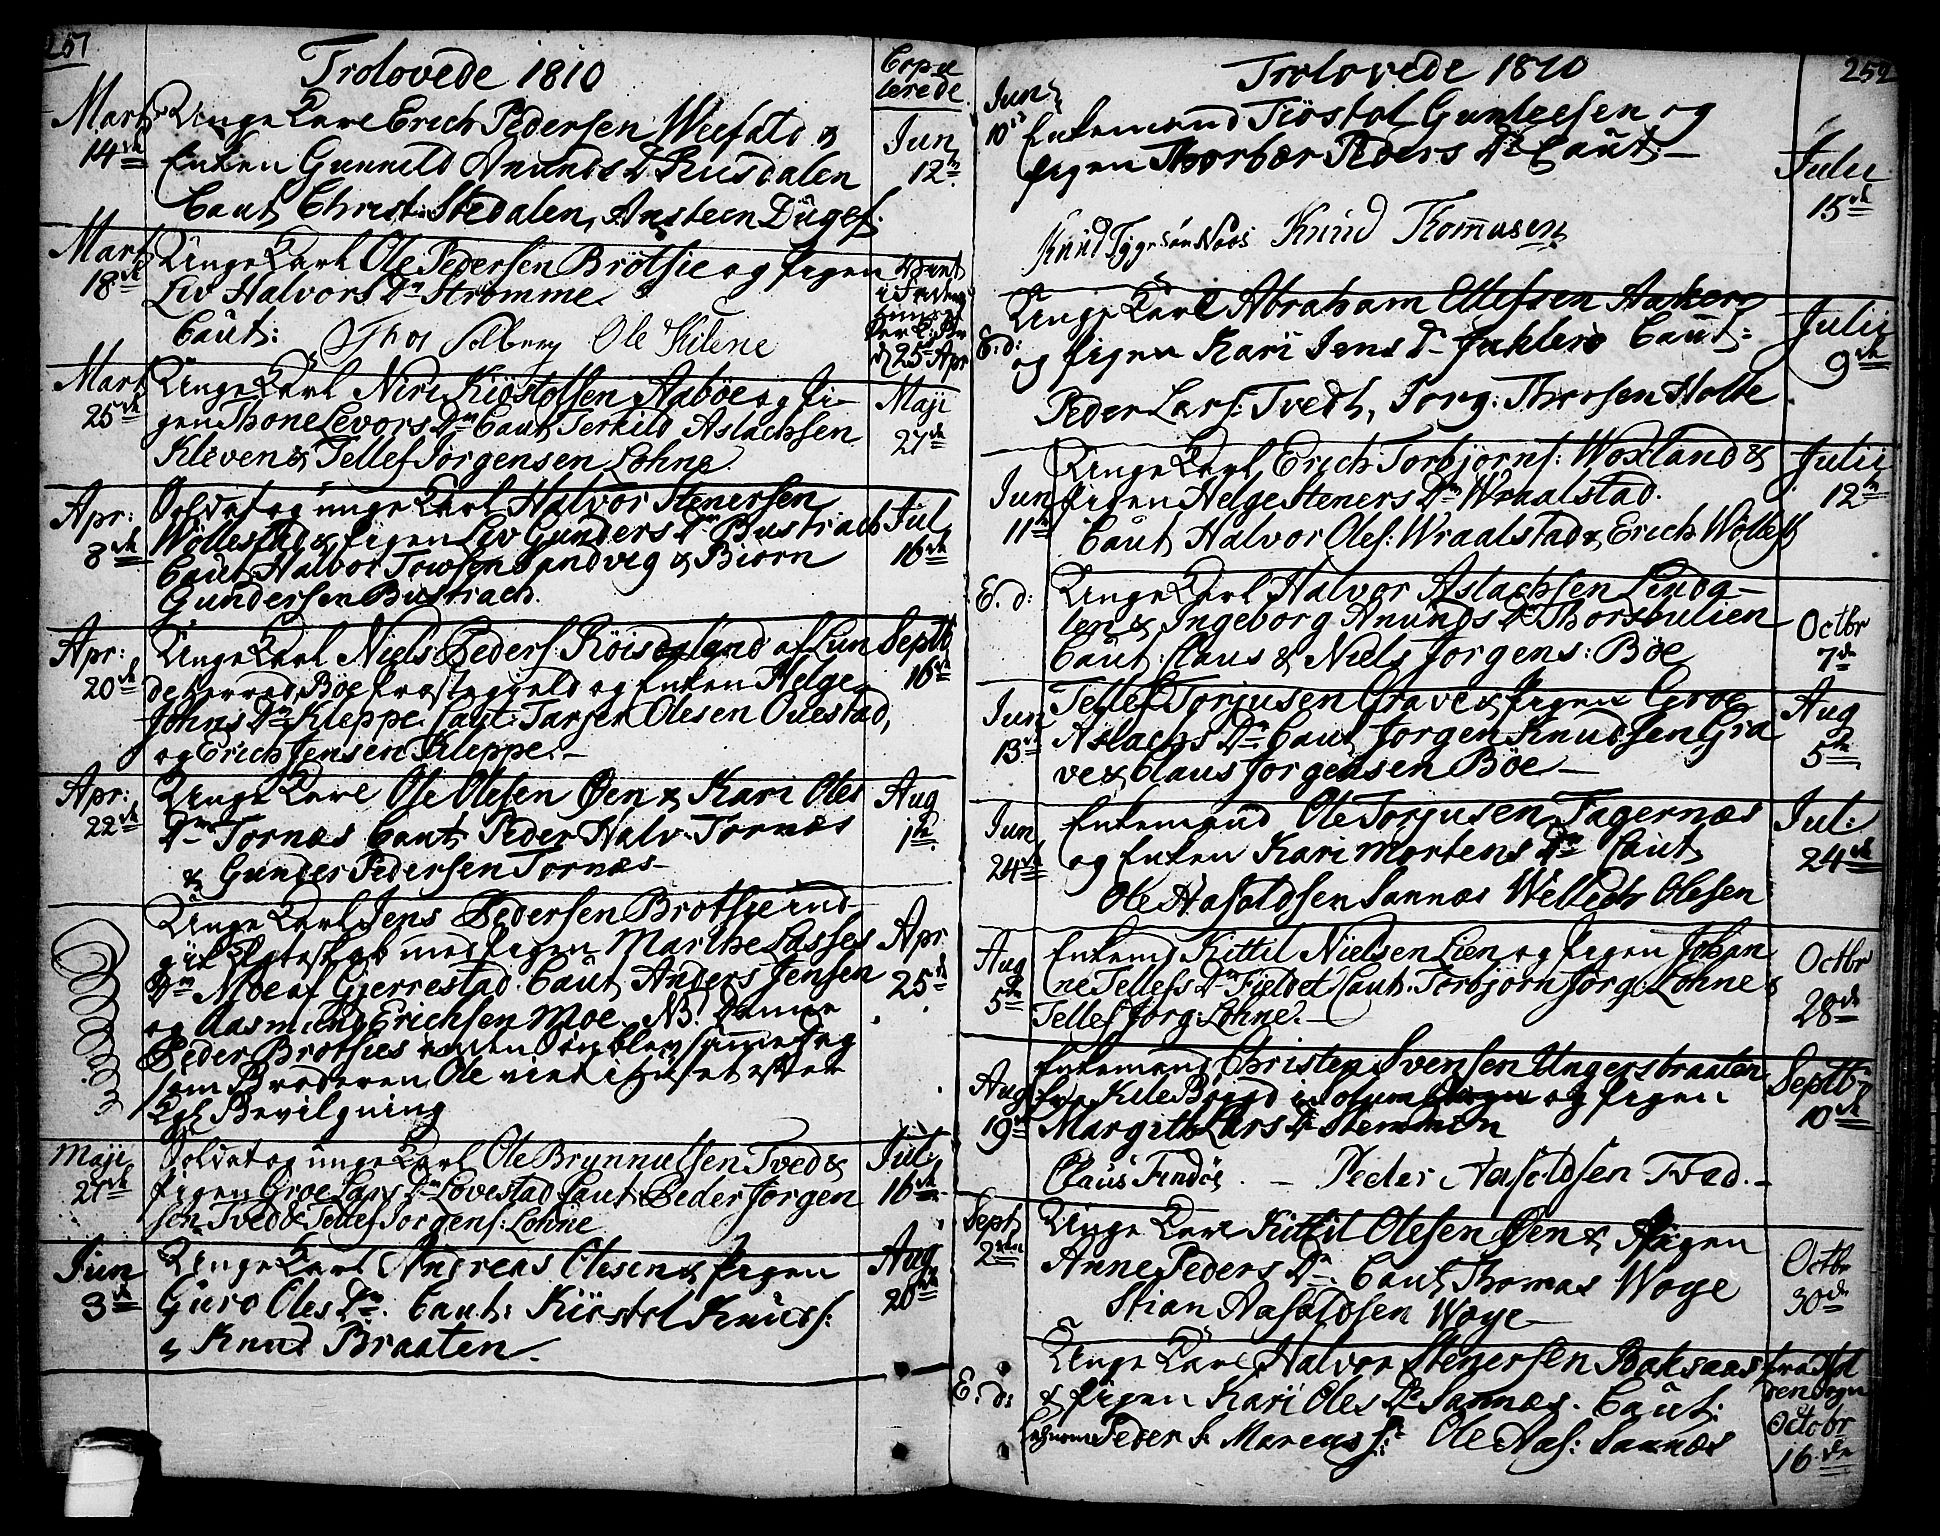 251
Trolovede 1810
Copu
lerede
Mart
14de
Unge Karl Erich Pedersen Weefald &
Enken Gunnild Anunds Dr Rusdalen
Caut Christ: Stedalen, Ansteen Dugef:
Jun
12te
Mart
18de
Unge Karl Ole Pedersen Brotsie og Pigen
Liv Halvors Dr Strømme
Caut: Thos Solberg Ole Kilene
viet
25 Apr
Mart
25de
Unge Karl Niri Kiøstolsen Aabøe og Pi-
gen Thone Levors Dr Caut Terkild Aslachsen
Kleven & Tellef Jorgensen Lohne
Maji
27de
Apr:
8de
Soldat og unge Karl Halvor Stenersen
Wollestad & Pigen Liv Gunders Dr Bustrach
Caut Halvor Towsen Sandvig & Biorn
Gundersen Bustrach.
Jul
16de
Apr:
20de
Unge Karl Niels Peders: Røisdland af Lun
deherred, Bøe Præstegield og Enken Helge
Johns Dr Kleppe. Caut: Tarjer Olesen Ouestad,
og Erich Jensen Kleppe.-
Septb
16de
Apr:
22de
Unge Karl Ole Olesen Øen & Kari Oles
Dr Tornæs Caut Peder Halv: Tornæs
& Gunder Pedersen Tornæs-
Aug
1te
Unge Karl Jens Pedersen Brotsie ind-
gik Egteskab med Pigen Marthe Lasses
Dr Moe af Gjerrestad. Caut Anders Jensen
og Aasmund Erichsen Moe. NB. Denne
Peder Brotsies anden Søn blev samme Dag
som Broderen Ole viet i Huset efter
Kgl Bevilgning
Apr
25de
Maji
27de
Soldat og unge Karl Ole Brynnulsen Tved &
Pigen Groe Lars Dr Lovestad Caut Peder Jorgen
sen Tved & Tellef Jorgens: Lohne
Jul:
16de
Jun
3de
Unge Karl Andreas Olesen & Pigen
Guro Oles Dr. Caut: Kiøstol Knuds:
& Knud Braaten.
Aug
20de
Trolovede 1810
252
Jun
10de
Enkemand Tiøstol Gunleksen og
Pigen Thorbør Peders Dr Caut-
Knud Tygesøn Noos Knud Tommesen
Julii
15de
E.d:
Unge Karl Abraham Ellefsen Aaker
og Pigen Kari Jens Dr Juklerø Caut:
Peder Lars: Tvedt, Jorg: Thorsen Holte
Julii
9de
Jun
11te
Unge Karl Erich Torbjorns: Woxland &
Pigen Helge Steners Dr Wraalstad.
Caut Halvor Oles: Wraalstad & Erich Wollest
Julii
12te
E.d:
Unge Karl Halvor Aslachsen Linda-
len & Ingeborg Anunds Dr Thorsbulien
Caut: Claus & Niels Jorgens: Bøe
Octbr
7de
Jun
13de
Tellef Torjusen Grave & Pigen Groe
Aslachs Dr Caut Jorgen Knudsen Gra
ve & Claus Jorgensen Bøe-
Aug
5te
Jun
24de
Enkemand Ole Torjusen Fagernæs
og Enken Kari Mortens Dr Caut
Ole Aasoldsen Sannæs Wellech Olesen
Jul:
24de
Aug
5te
Enkemd Kittil Nielsen Lien og Pigen Johan
ne Tellefs Dr Fieldet Caut: Torbjorn Jørg: Lohne &
Tellef Jorg: Lohne.-
Octbr
28de
Aug
19de
Enkemand Christen Svensen Ungerstraaten
fra Kile Bøygd i Solum og Pigen
Margith Lars Dr Stemmen
Claus Findös. - Peder Aasoldsen Tved.-
Septb
10de
Sept
2den
Unge Karl Kittil Olesen Øen & Pigen
Anne Peders Dr. Caut Thomas Woge
Stian Aasoldsen Woge-
Octbr
30de
E.d:
Unge Karl Halvor Stenersen Baksaas
& Pigen Kari Oles Dr Sannæs. Caut:
Peder & Marcus Ole Aas: Sannæs
Octobr
16de